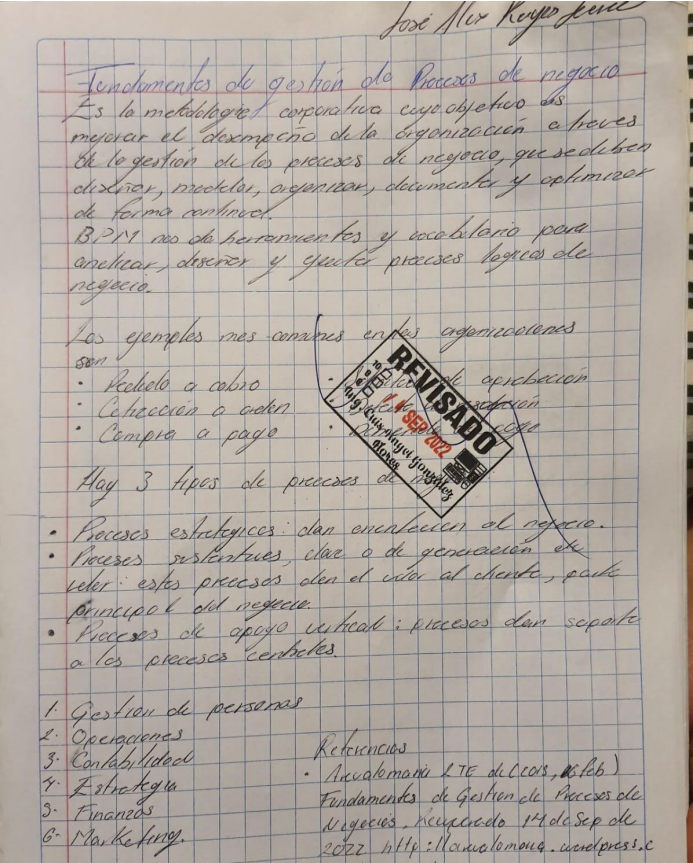 José Alex Reyes
Fundamentos de gestión de Procesos de negocio
Es la metodología corporativa cuyo objetivo es
mejorar el desempeño de la organización a traves
de la gestión de los procesos de negocio, que se deben
diseñar, modelar, organizar, documentar y optimizar
de forma continua.
BPM nos da herramientas y vocabulario para
analizar, diseñar y ejecutar procesos logicos de
negocio.
Los ejemplos mas comunes en las organizaciones
son
• Pedido a cobro
• de aprobación
• Cotización a orden
• Compra a pago
REVISADO
10
9
8
14 SEP 2022
Ing. Luis Angel González
Flores
Hay 3 tipos de procesos de
• Procesos estrategicos: dan orientación al negocio.
• Procesos sustantivos, clave o de generación de
valor: estos procesos dan el valor al cliente, parte
principal del negocio.
• Procesos de apoyo vertical: procesos dan soporte
a los procesos centrales.
1. Gestion de personas
2. Operaciones
3. Contabilidad
4. Estrategia
5. Finanzas
6. Marketing.
Referencias
• LTE de (2015, 06 feb)
Fundamentos de Gestion de Procesos de
Negocios. Recuperado 14 de Sep de
2022 http://arevalomaria.wordpress.c